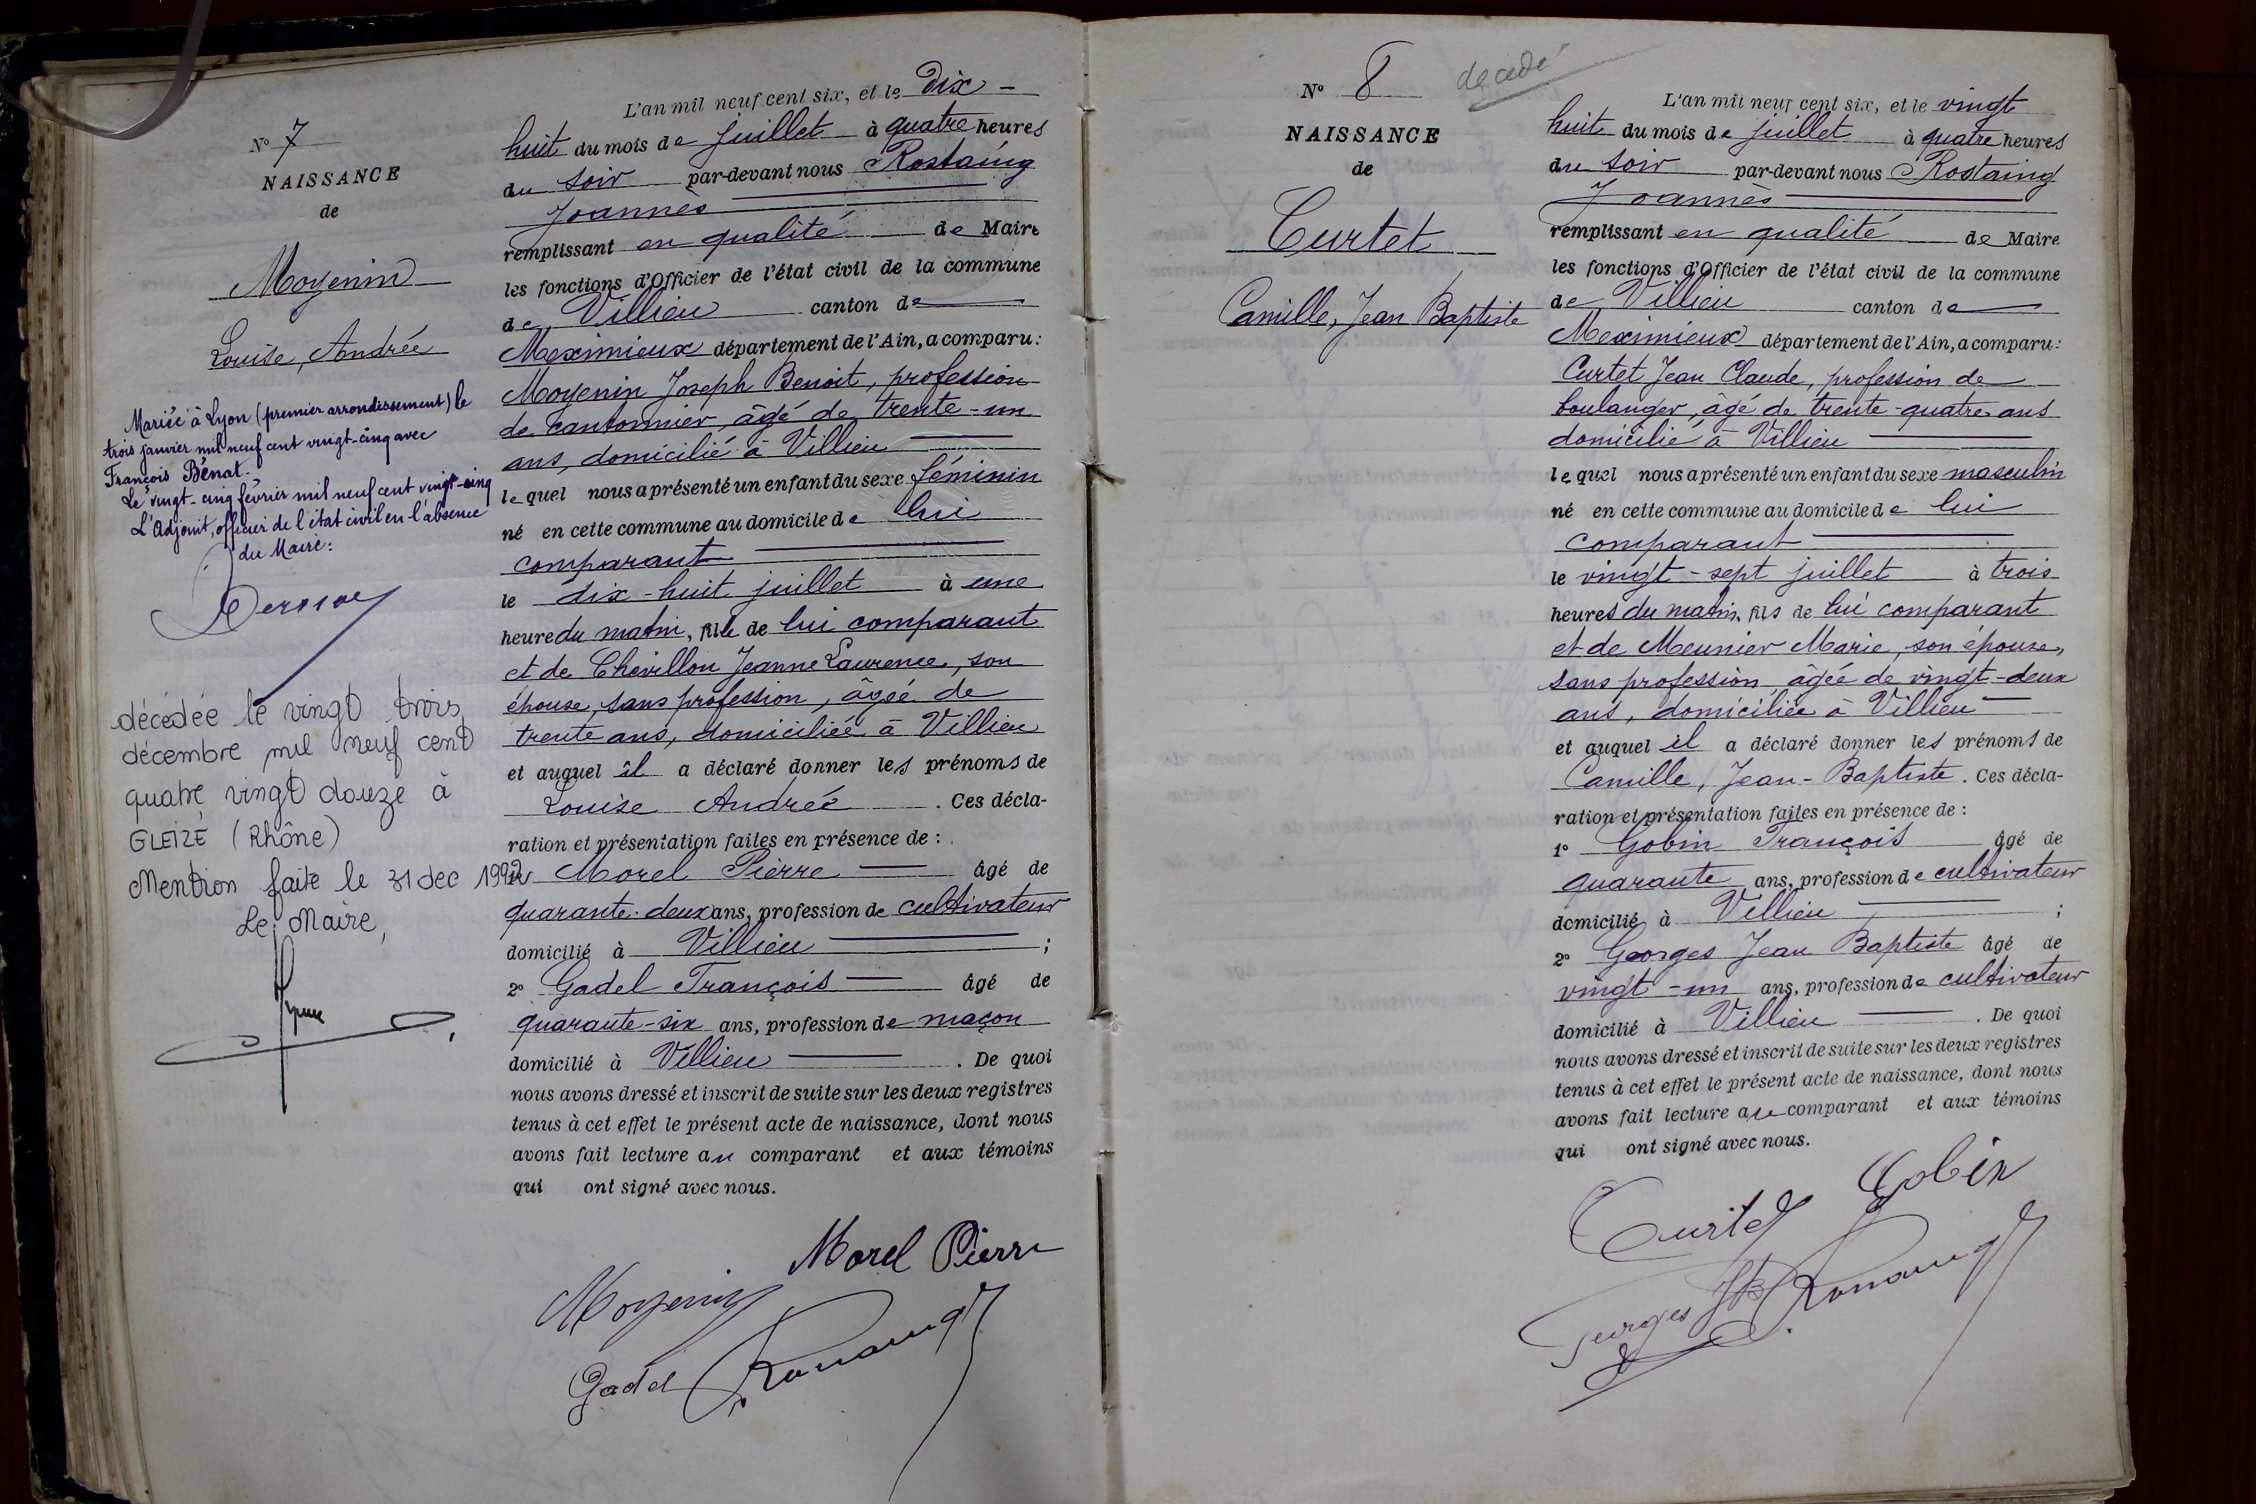 N° 7
NAISSANCE
de
Moyenin
Louise, Andrée
Mariée à Lyon (premier arrondissement) le
trois janvier mil neuf cent vingt-cinq avec
François Bénat.
Le vingt-cinq février mil neuf cent vingt-cinq
L'Adjoint, officier de l'état civil en l'absence
du Maire:
décédée le vingt trois
décembre mil neuf cent
quatre vingt douze à
GLEIZE (Rhône)
Mention faite le 31 dec 1992
Le Maire,
L'an mil neuf cent six, et le Dix-
huit du mois de juillet à quatre heures
du soir par-devant nous Rostaing
Joannès
remplissant en qualité de Maire
les fonctions d'Officier de l'état civil de la commune
de Villieu canton de
Meximieux département de l'Ain, a comparu:
Moyenin Joseph Benoit, profession
de cantonnier, âgé de trente-un
ans, domicilié à Villieu
lequel nous a présenté un enfant du sexe féminin
né en cette commune au domicile de lui
comparant
le dix-huit juillet à une
heure du matin, fille de lui comparant
et de Chevillon Jeanne Laurence, son
épouse, sans profession, âgée de
trente ans, domiciliée à Villieu
et auquel il a déclaré donner les prénoms de
Louise Andrée. Ces décla-
ration et présentation faites en présence de:
Morel Pierre âgé de
quarante-deux ans, profession de cultivateur
domicilié à Villieu;
2° Gadel François âgé de
quarante-six ans, profession de maçon
domicilié à Villieu. De quoi
nous avons dressé et inscrit de suite sur les deux registres
tenus à cet effet le présent acte de naissance, dont nous
avons fait lecture au comparant et aux témoins
qui ont signé avec nous.
Morel Pierre
Moyenin
Gadel
N° 8 decedé
NAISSANCE
de
Curtet
Camille, Jean Baptiste
L'an mil neuf cent six, et le vingt
huit du mois de juillet à quatre heures
du soir par-devant nous Rostaing
Joannès
remplissant en qualité de Maire
les fonctions d'Officier de l'état civil de la commune
de Villieu canton de
Meximieux département de l'Ain, a comparu:
Curtet Jean Claude, profession de
boulanger, âgé de trente-quatre ans
domicilié à Villieu
lequel nous a présenté un enfant du sexe masculin
né en cette commune au domicile de lui
comparant
le vingt-sept juillet à trois
heures du matin, fils de lui comparant
et de Meunier Marie, son épouse,
sans profession âgée de vingt-deux
ans, domiciliée à Villieu
et auquel il a déclaré donner les prénoms de
Camille, Jean-Baptiste. Ces décla-
ration et présentation faites en présence de:
1° Gobin François âgé de
quarante ans, profession de cultivateur
domicilié à Villieu;
2° Georges Jean Baptiste âgé de
vingt-un ans, profession de cultivateur
domicilié à Villieu. De quoi
nous avons dressé et inscrit de suite sur les deux registres
tenus à cet effet le présent acte de naissance, dont nous
avons fait lecture au comparant et aux témoins
qui ont signé avec nous.
Gobin
Curtet
Georges JB